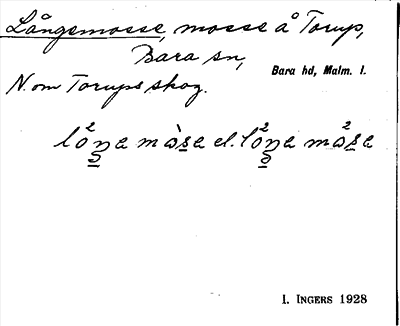 Långsmosse, mosse å Torup,
Bara sn,
Bara hd, Malm. l.
N. om Torups skog.
lo²ŋa màsa el. lo²ŋa mo²sa
I. INGERS 1928